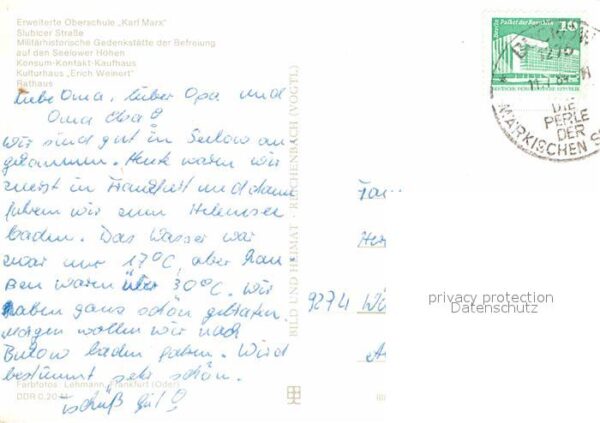 Erweiterte Oberschule „Karl Marx"
Slubicer Straße
Militärhistorische Gedenkstätte der Befreiung
auf den Seelower Höhen
Konsum-Kontakt-Kaufhaus
Kulturhaus „Erich Weinert"
Rathaus
Liebe Oma, lieber Opa und
Oma Elsa!
Wir sind gut in Seelow an
gekommen. Heute waren wir
zuerst in Frankfurt und dann
fuhren wir zum Helensee
baden. Das Wasser war
zwar nur 17°C, aber
draußen waren über 30°C. Wir
haben ganz schön gebraten.
Morgen wollen wir nach
Bukow baden fahren. Wird
bestimmt sehr schön.
Tschüß
Farbfotos Lehmann, Frankfurt (Oder)
DDR 0,20 M
BILD UND HEIMAT · REICHENBACH (VOGTL)
Palast der Republik
10
DEUTSCHE DEMOKRATISCHE REPUBLIK
DIE
PERLE
DER
MÄRKISCHEN S
Fam
9274
privacy protection
Datenschutz